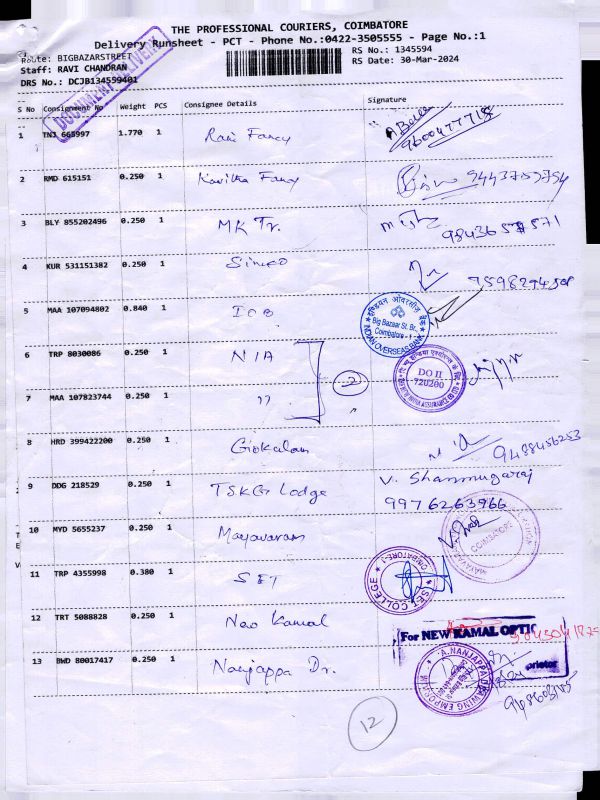 THE PROFESSIONAL COURIERS, COIMBATORE
Delivery Runsheet - PCT - Phone No.:0422-3505555 - Page No.:1
Route: BIGBAZARSTREET
RS No.: 1345594
Staff: RAVI CHANDRAN
RS Date: 30-Mar-2024
DRS No.: DCJB134559401
DOCUMENT DELIVERED
S No Consignment No Weight PCS Consignee Details Signature
1 TNJ 665997 1.770 1 Rani Fancy 9600477718
2 RMD 615151 0.250 1 Kavitha Fancy
3 BLY 855202496 0.250 1 MK Tr.
4 KUR 531151382 0.250 1 Simco
5 MAA 107094802 0.840 1 IOB
इण्डियन ओवरसीज़ बैंक
Big Bazaar St. Br.,
Coimbatore - 1
INDIAN OVERSEAS BANK
6 TRP 8030086 0.250 1 NIA
DO II
720200
7 MAA 107823744 0.250 1 "
2
8 HRD 399422200 0.250 1 9488456253
9 DDG 218529 0.250 1 TSKG Lodge V. Shanmugaraj
9976263966
10 MYD 5655237 0.250 1 Mayavaram
COIMBATORE
11 TRP 4355998 0.380 1 SET
SET COLLEGE
12 TRT 5088828 0.250 1 Neo Kamal
For NEW KAMAL OPTIC
13 BWD 80017417 0.250 1 Nanjappa Dr.
A.NANJAPPA DRAWING EMPORIUM
12